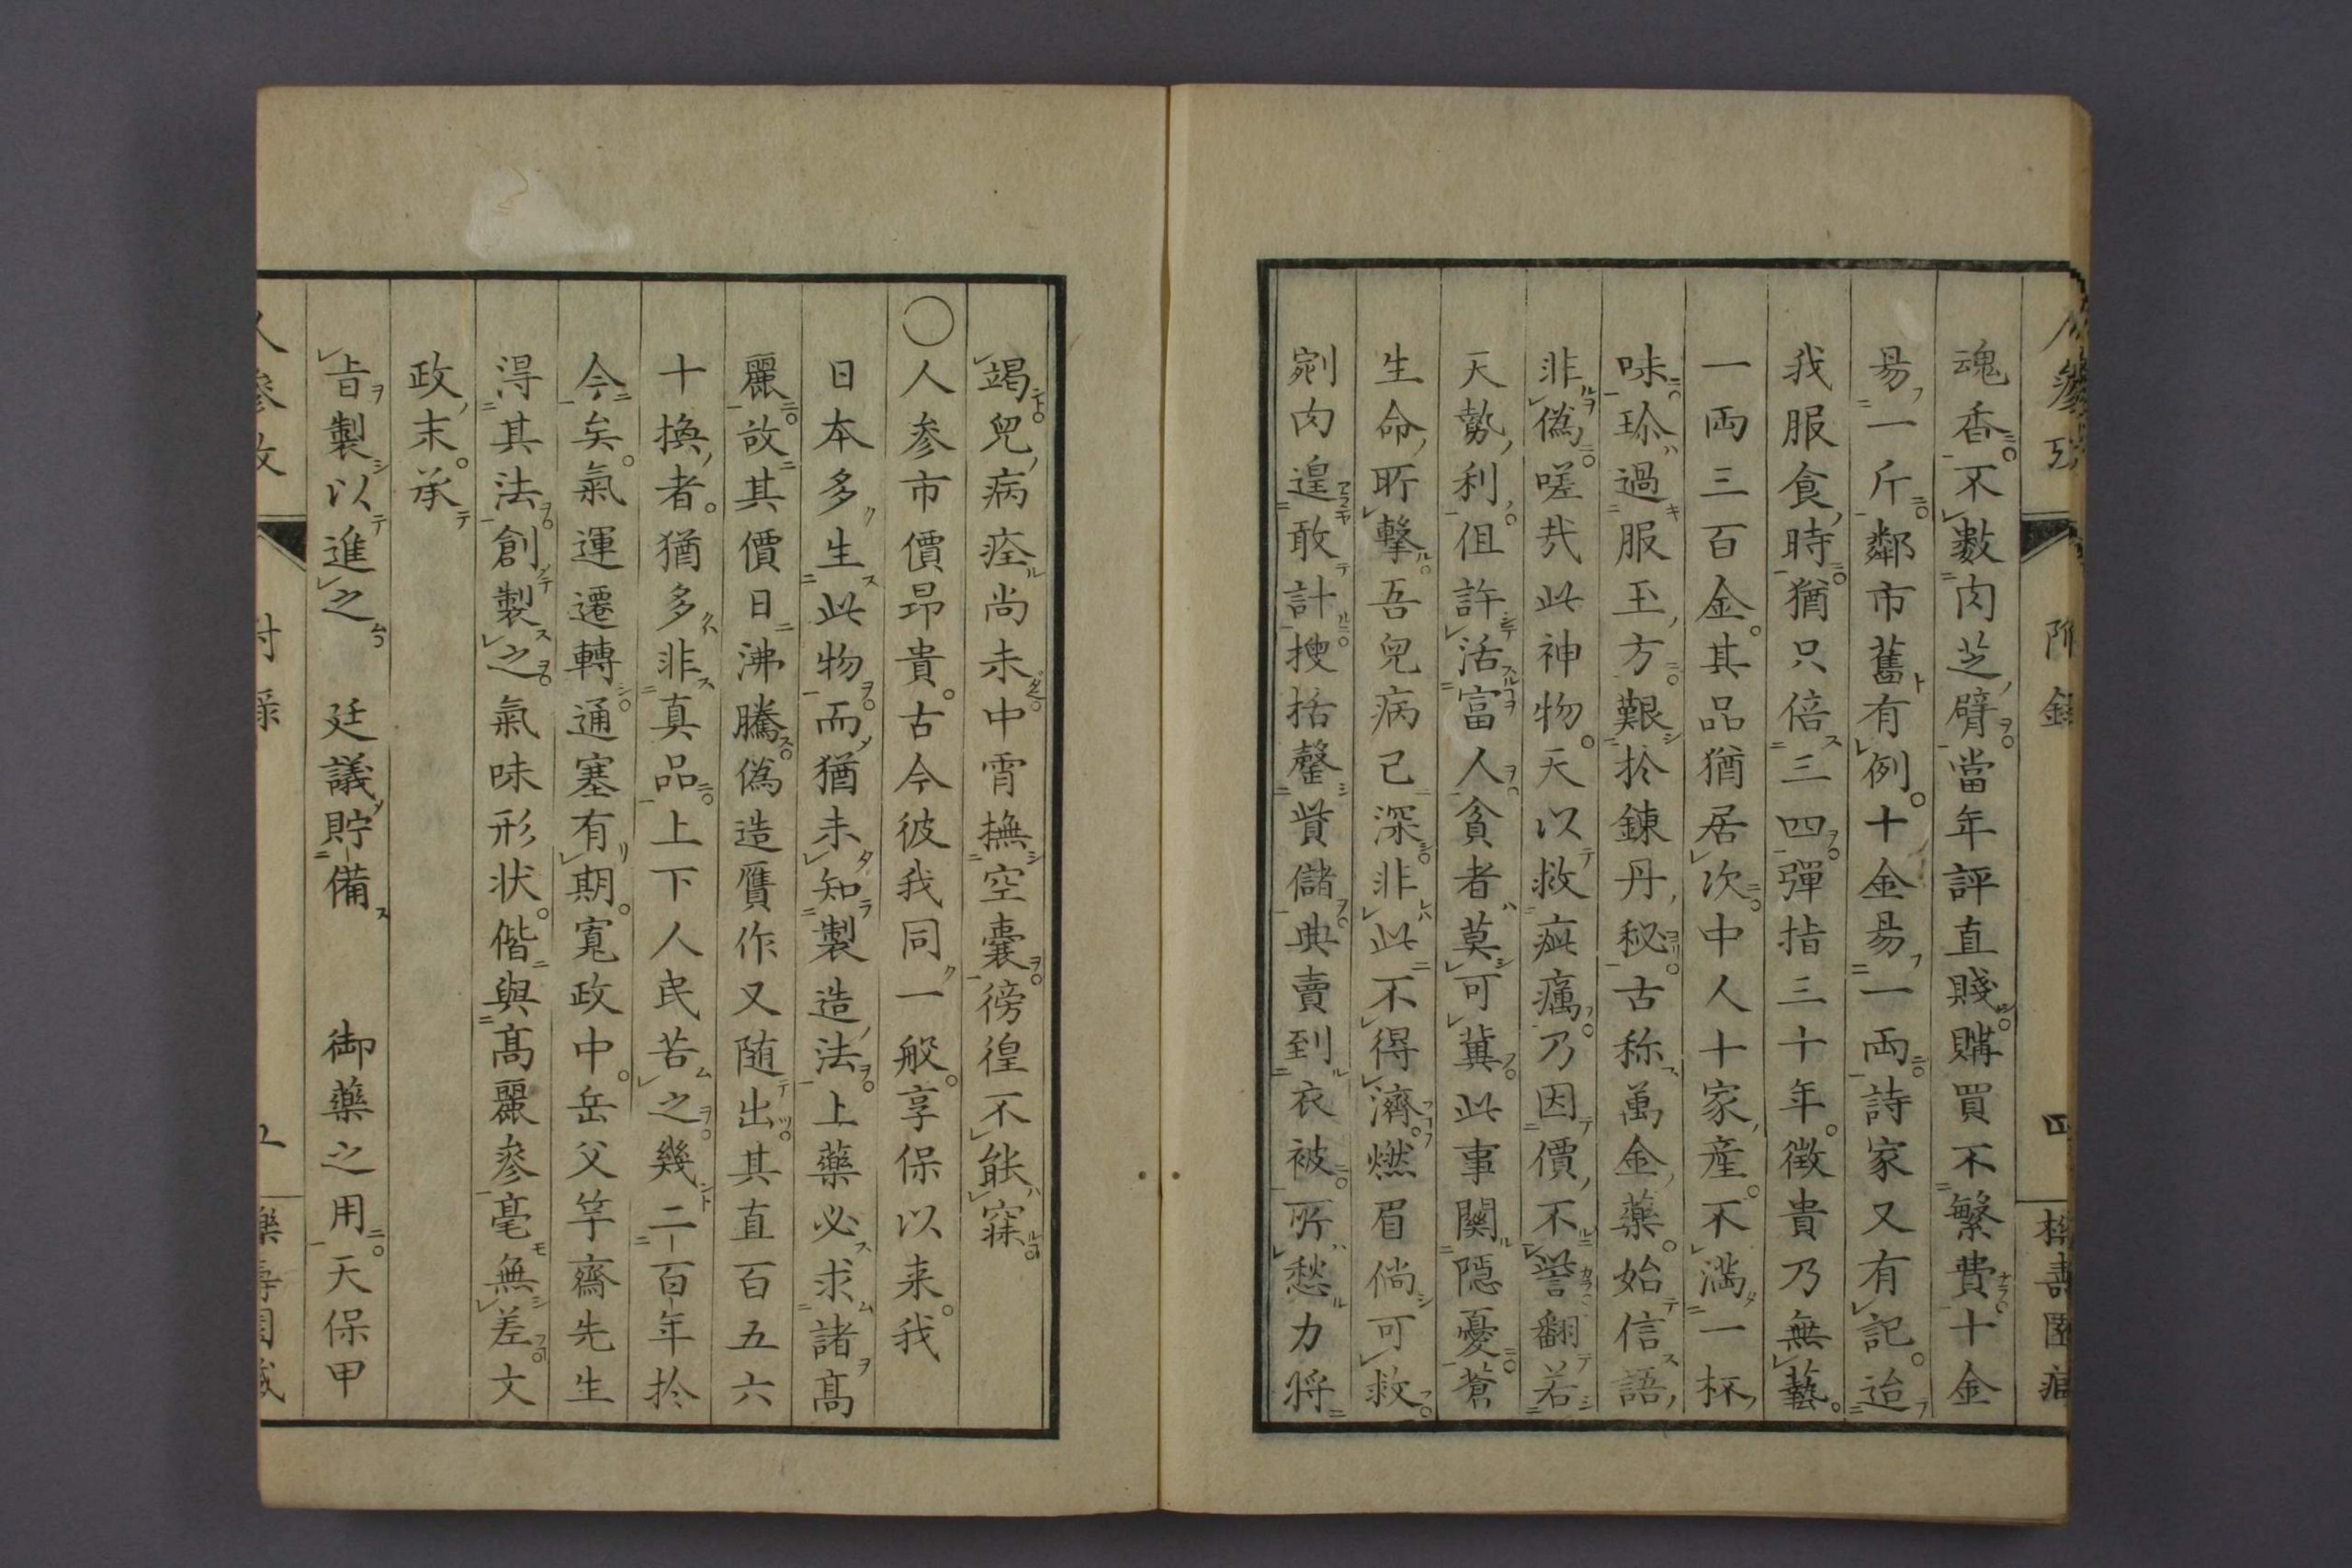 附錄 四
魂香不數肉芝臂當年評直賤購買不繁費十金
易一斤鄰市舊有例十金易一両詩家又有記迨
我服食時猶只倍三四彈指三十年徴貴乃無藝
一両三百金其品猶居次中人十家産不満一杯
味珎過服玉方艱於鍊丹秘古称萬金藥始信語
非偽嗟㢤此神物天以救疵癘乃因價不訾翻若
天勢利但許活富人貧者莫可冀此事關隠憂蒼
生命所撃吾兒病已深非此不得濟燃眉倘可救
剜肉遑敢計搜括罄貲儲典賣到衣被所愁力将
竭兒病痊尚未中霄撫空囊徬徨不能寐
〇人参市價昂貴古今彼我同一般享保以来我
日本多生此物而猶未知製造法上藥必求諸髙
麗故其價日沸騰偽造贋作又随出其直百五六
十換者猶多非真品上下人民苦之幾二百年於
今矣氣運遷轉通塞有期寛政中岳父竿齋先生
淂其法創製之氣味形状偕與髙麗参毫無差文
政末承
旨製以進之 廷議貯備 御藥之用天保甲